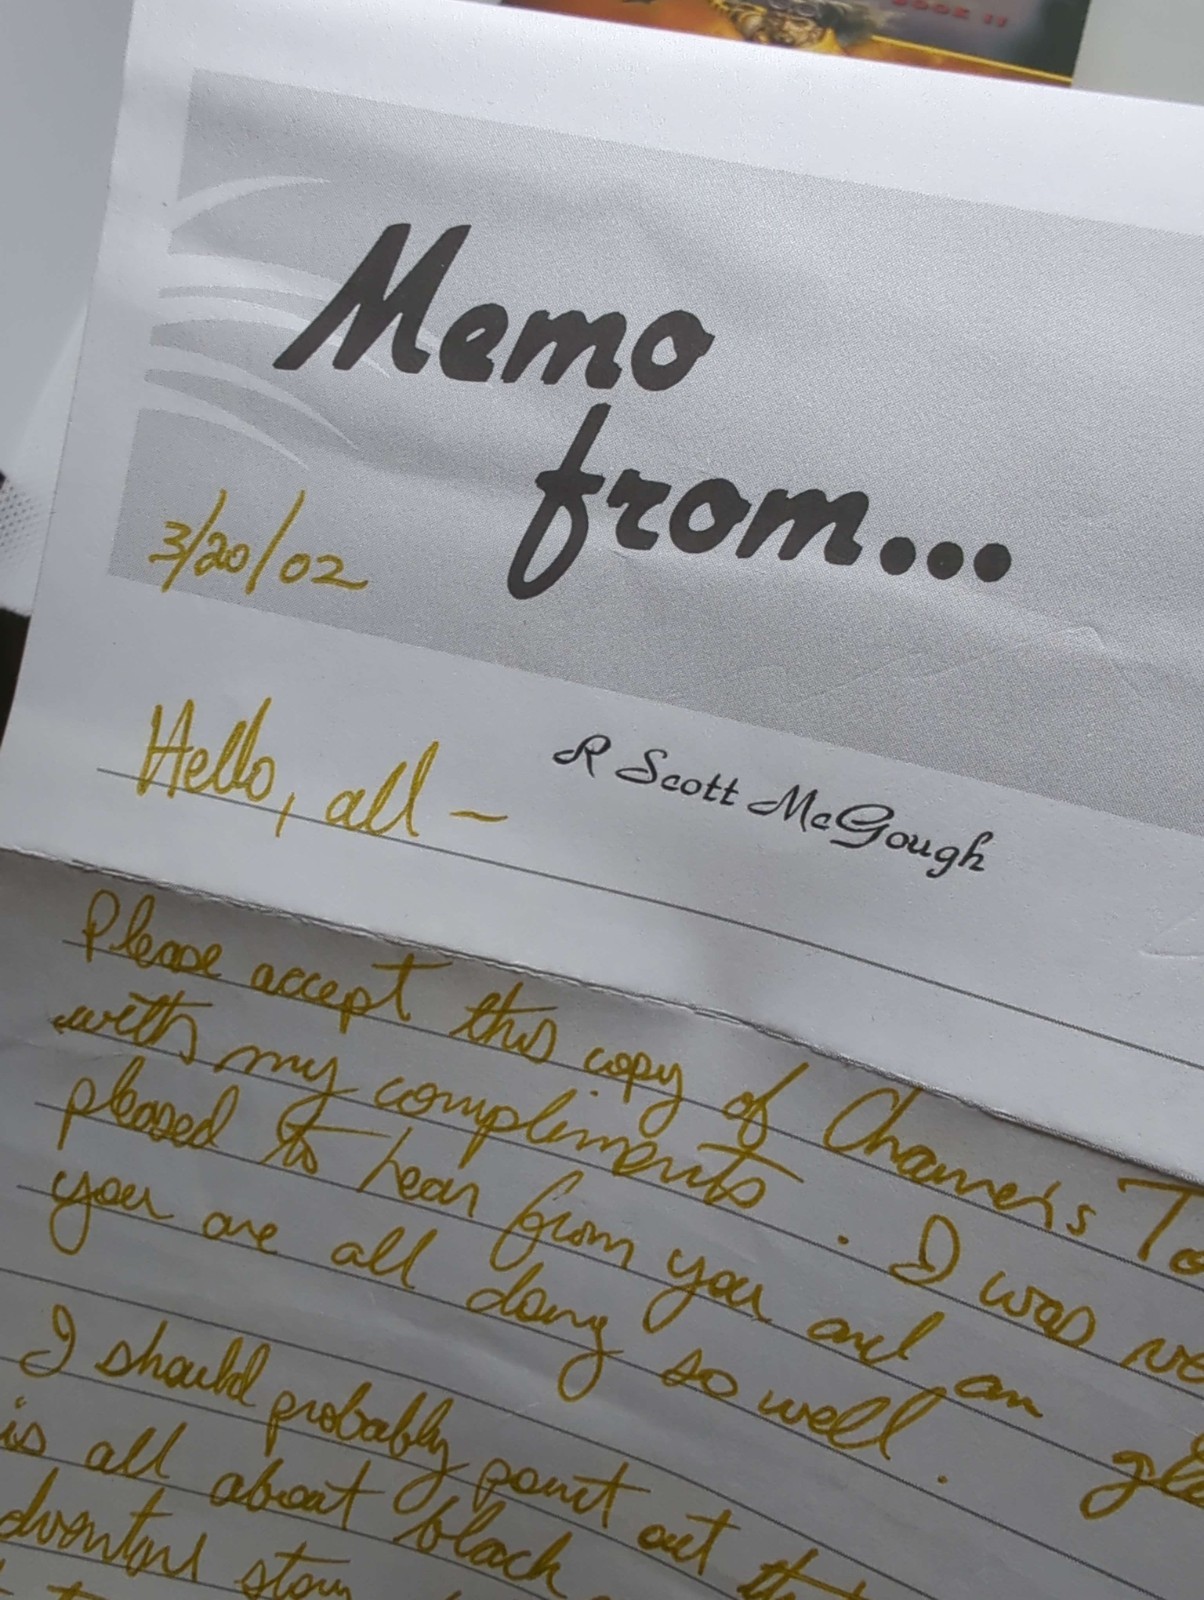 BOOK II
Memo
from...
3/20/02
R Scott McGough
Hello, all —
Please accept this copy of Chainer's To
with my compliments. I was ve
pleased to hear from you and am gla
you are all doing so well.
I should probably point out that
is all about black
dventure story